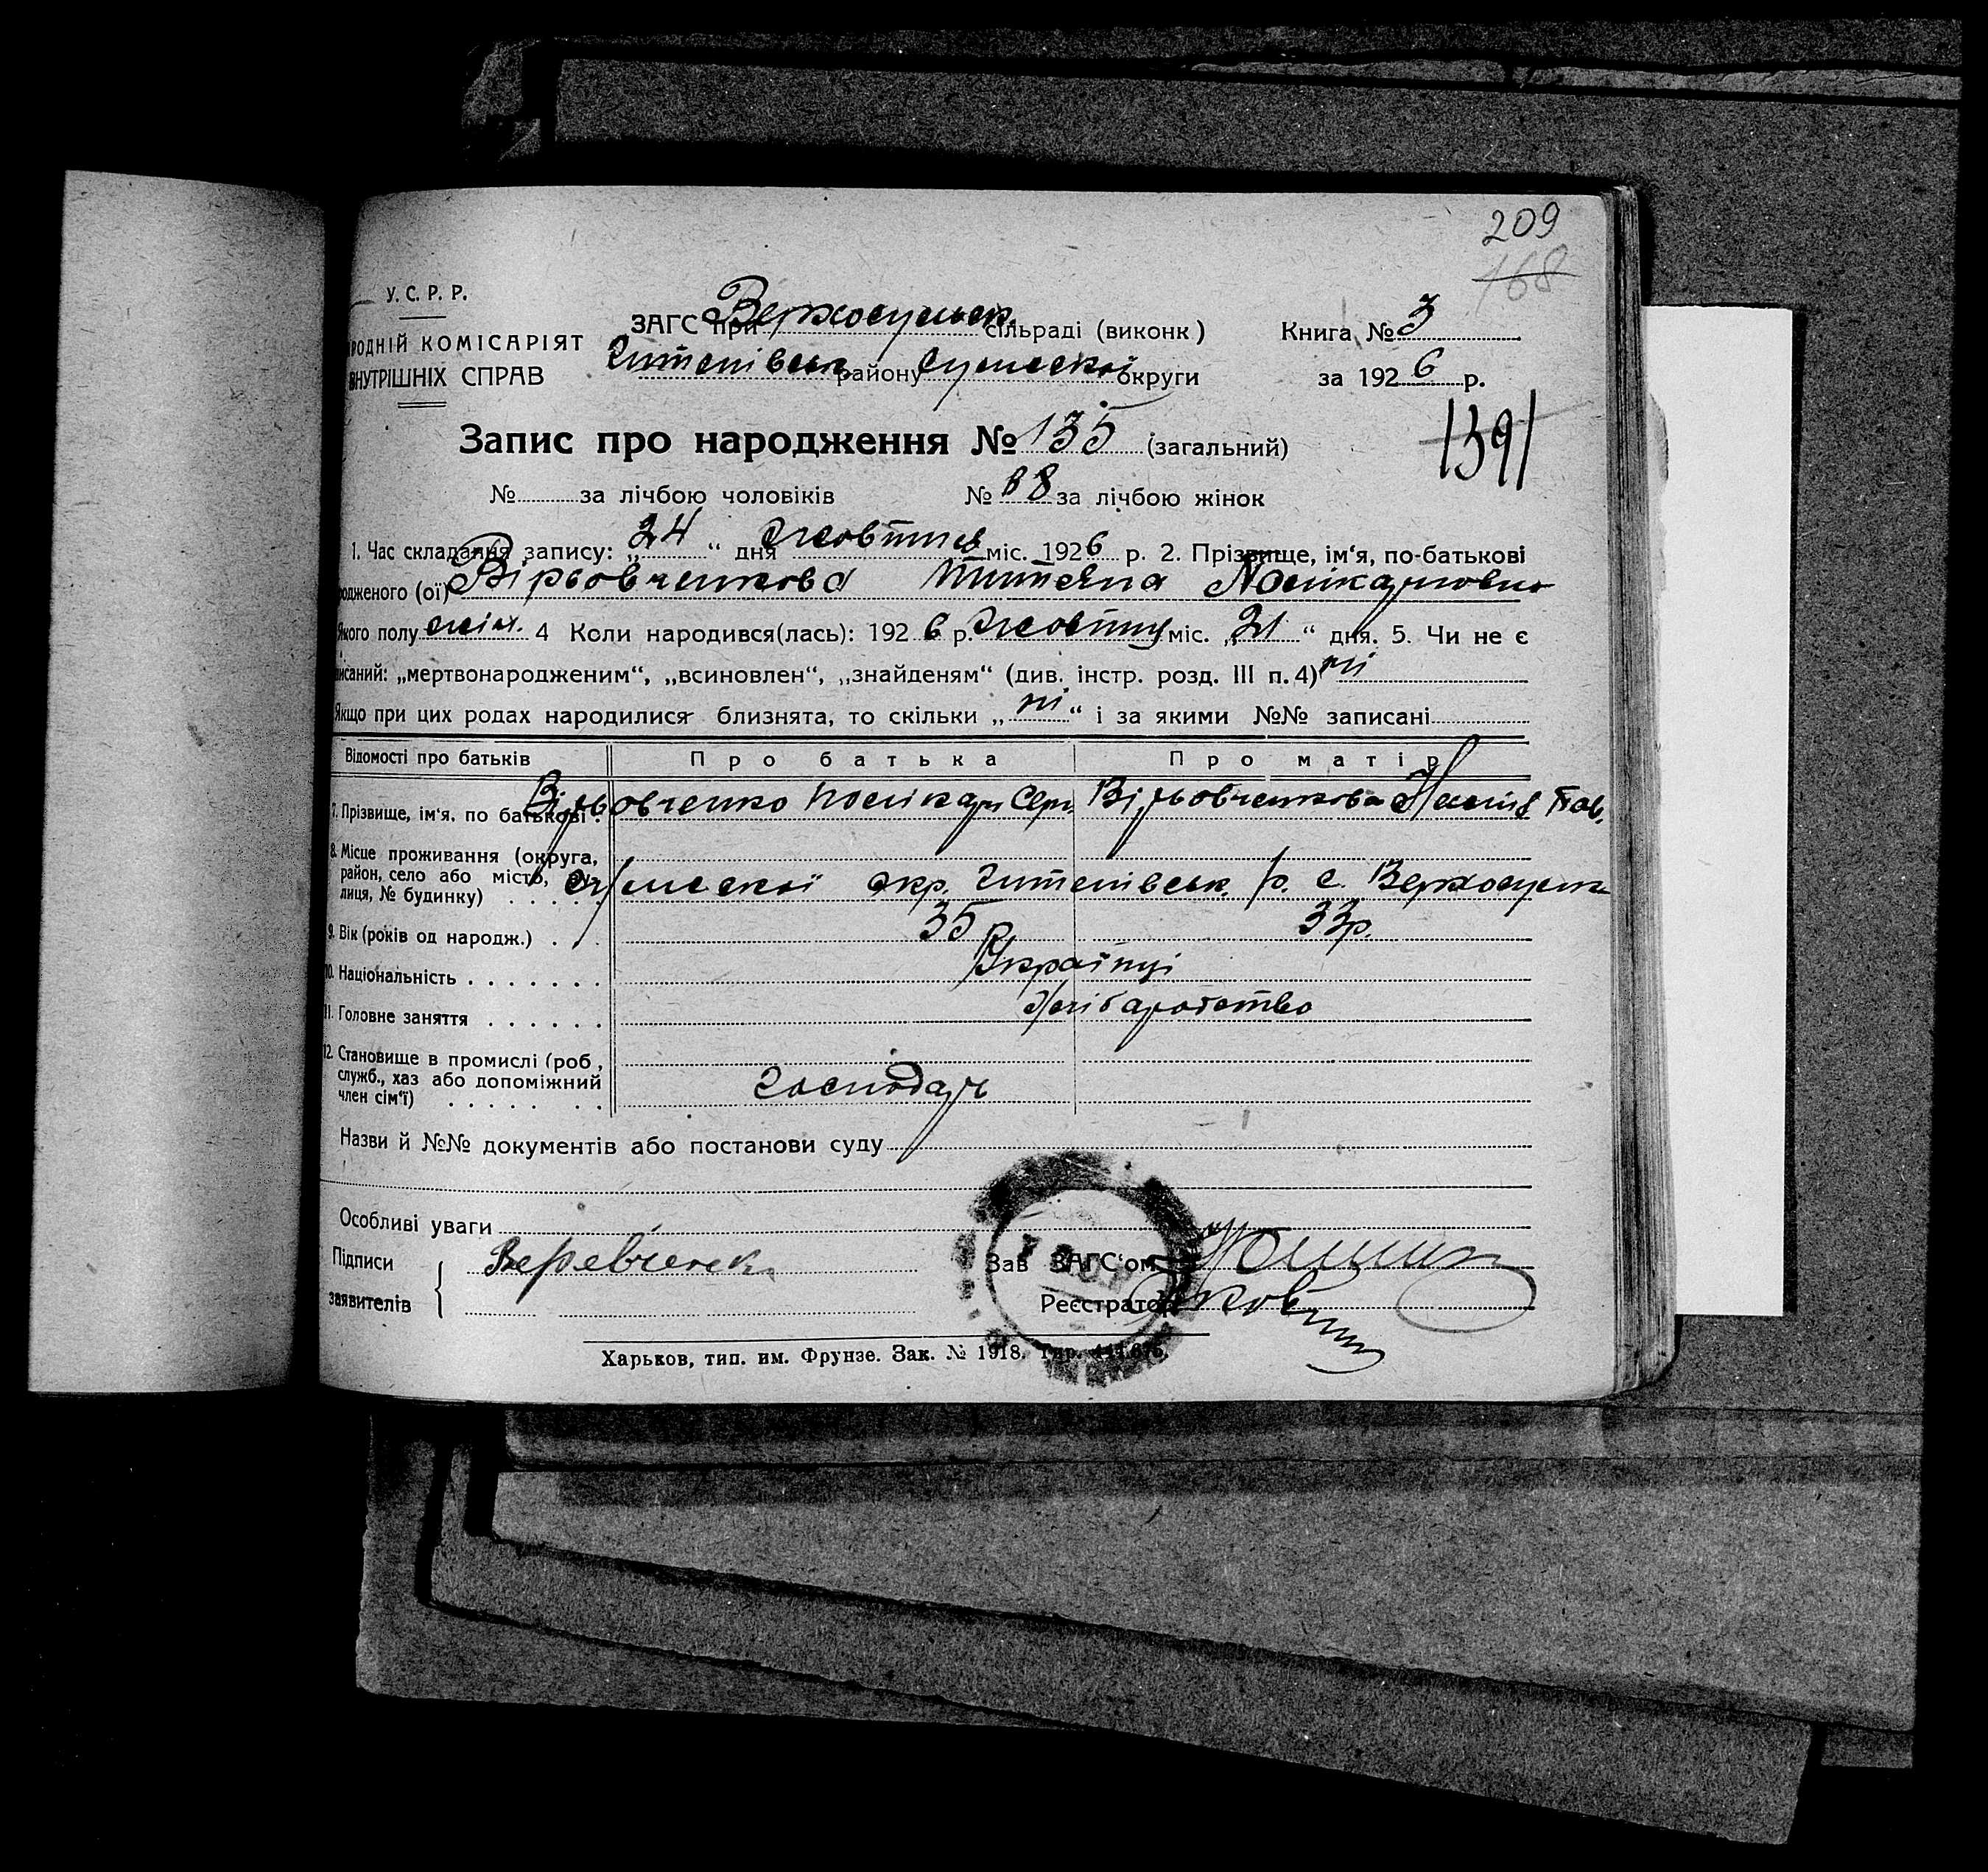 209
168
У. С. Р. Р.
РОДНІЙ КОМІСАРІЯТ
ВНУТРІШНІХ СПРАВ
ЗАГС при Верхосульск. сільраді (виконк)
Книга № 3
Штепівськ. району Сумської округи
за 1926 р.
Запис про народження № 135 (загальний)
1391
№ за лічбою чоловіків № 88 за лічбою жінок
1. Час складання запису: „24“ дня Жовтня міс. 1926 р. 2. Прізвище, ім‘я, по-батькові
родженого (ої) Вірьовченкова Титяна Полікарповна
Якого полу жін. 4 Коли народився(лась): 1926 р. Жовтня міс. „21“ дня. 5. Чи не є
писаний: „мертвонародженим“, „всиновлен“, „знайденям“ (див. інстр. розд. III п. 4) ні
Якщо при цих родах народилися близнята, то скільки „ні“ і за якими №№ записані
Відомості про батьків Про батька Про матір
7. Прізвище, ім‘я. по батькові. Вірьовченко Полікарп Серг. Вірьовченкова Пав.
8. Місце проживання (округа,
район, село або місто,
лиця, № будинку) Сумської окр. Штепівськ. р. с. Верхосулка
9. Вік (років од народж.) 35 р. 33 р.
10. Національність Українці
11. Головне заняття Хліборобство
12. Становище в промислі (роб,
служб., хаз або допоміжний
член сім‘ї) Господарь
Назви й №№ документів або постанови суду
Особливі уваги
Підписи
заявителів Веревченк
Зав ЗАГС‘ом
Реєстратор
Харьков, тип. им. Фрунзе. Зак. № 1918. Тир.